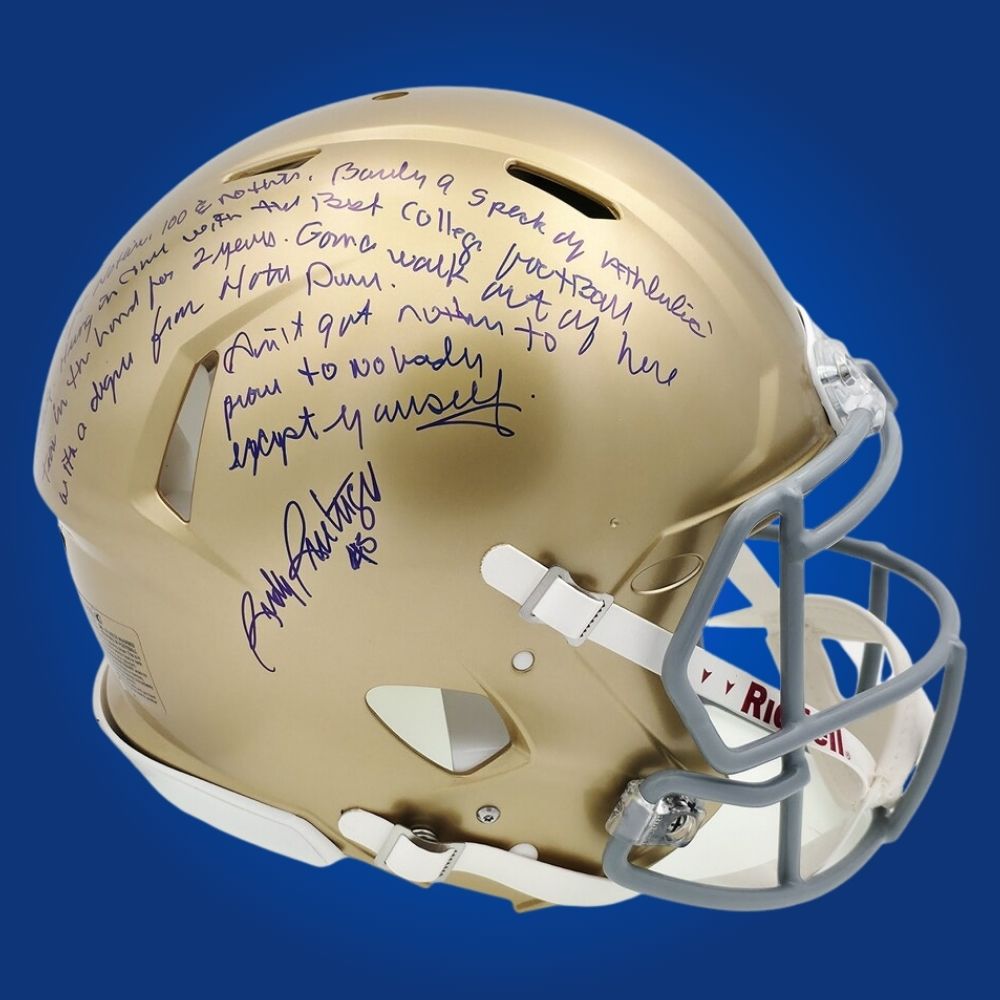 nothin. 100 & nothin. Barely a speck of Athletic
Hung in with the Best College football
team in the land for 2 years. Gonna walk out of here
with a degree from Notre Dame.
Ain't got nothin to
prove to nobody
except yourself.
Rudy Ruettiger
#45
Riddell